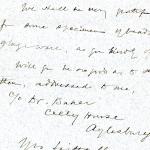 We shall be very grateful
for some specimens of
as you kindly
Will you be so good as to
them, addressed to me,
c/o Dr. Baker
Ceely House
Aylesbury
Mrs